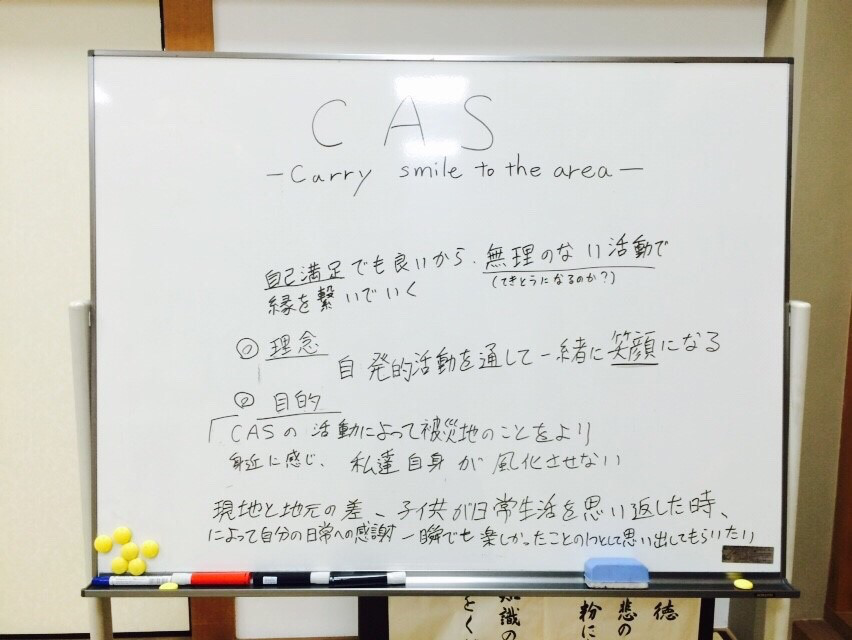 CAS
-Carry smile to the area-
自己満足でも良いから、無理のない活動で
(てきとうになるのか?)
縁を繋いでいく
① 理念
自発的活動を通して一緒に笑顔になる
② 目的
「CASの活動によって被災地のことをより
身近に感じ、私達自身が風化させない
現地と地元の差、子供が日常生活を思い返した時、
によって自分の日常への感謝 一瞬でも楽しかったことの1つとして思い出してもらいたい
徳
悲の
粉に
知識の
をく